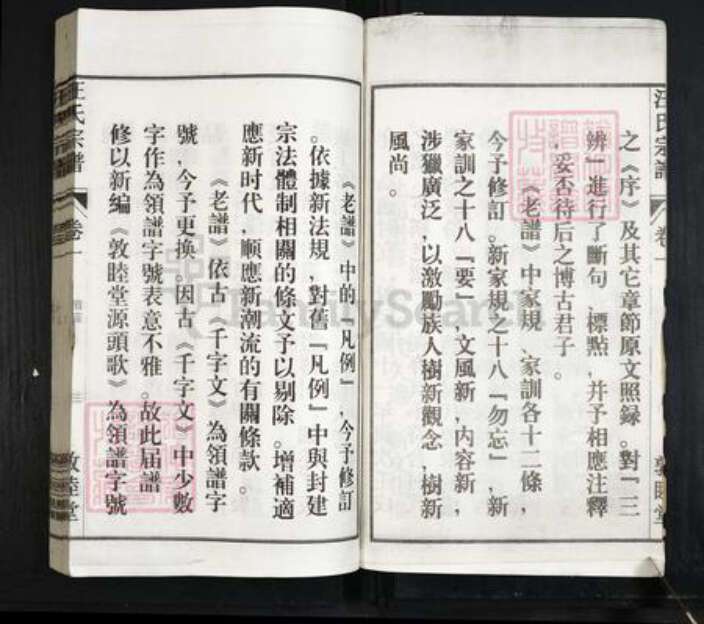 之《序》及其它章節原文照録。對『三
辨』進行了斷句、標點，并予相應注釋
，妥否待后之博古君子。
《老譜》中家規、家訓各十二條，
今予修訂。新家規之十八『勿忘』，新
家訓之十八『要』，文風新，内容新，
涉獵廣泛，以激勵族人樹新觀念，樹新
風尚。
《老譜》中的『凡例』，今予修訂
。依據新法規，對舊『凡例』中與封建
宗法體制相關的條文予以剔除。增補適
應新时代，順應新潮流的有關條款。
《老譜》依古《千字文》為領譜字
號，今予更换。因古《千字文》中少數
字作為領譜字號表意不雅。故此届譜
修以新編《敦睦堂源頭歌》為領譜字號
汪氏宗譜
卷一
三
敦睦堂
汪氏宗譜
卷一
敦睦堂
FamilySearch